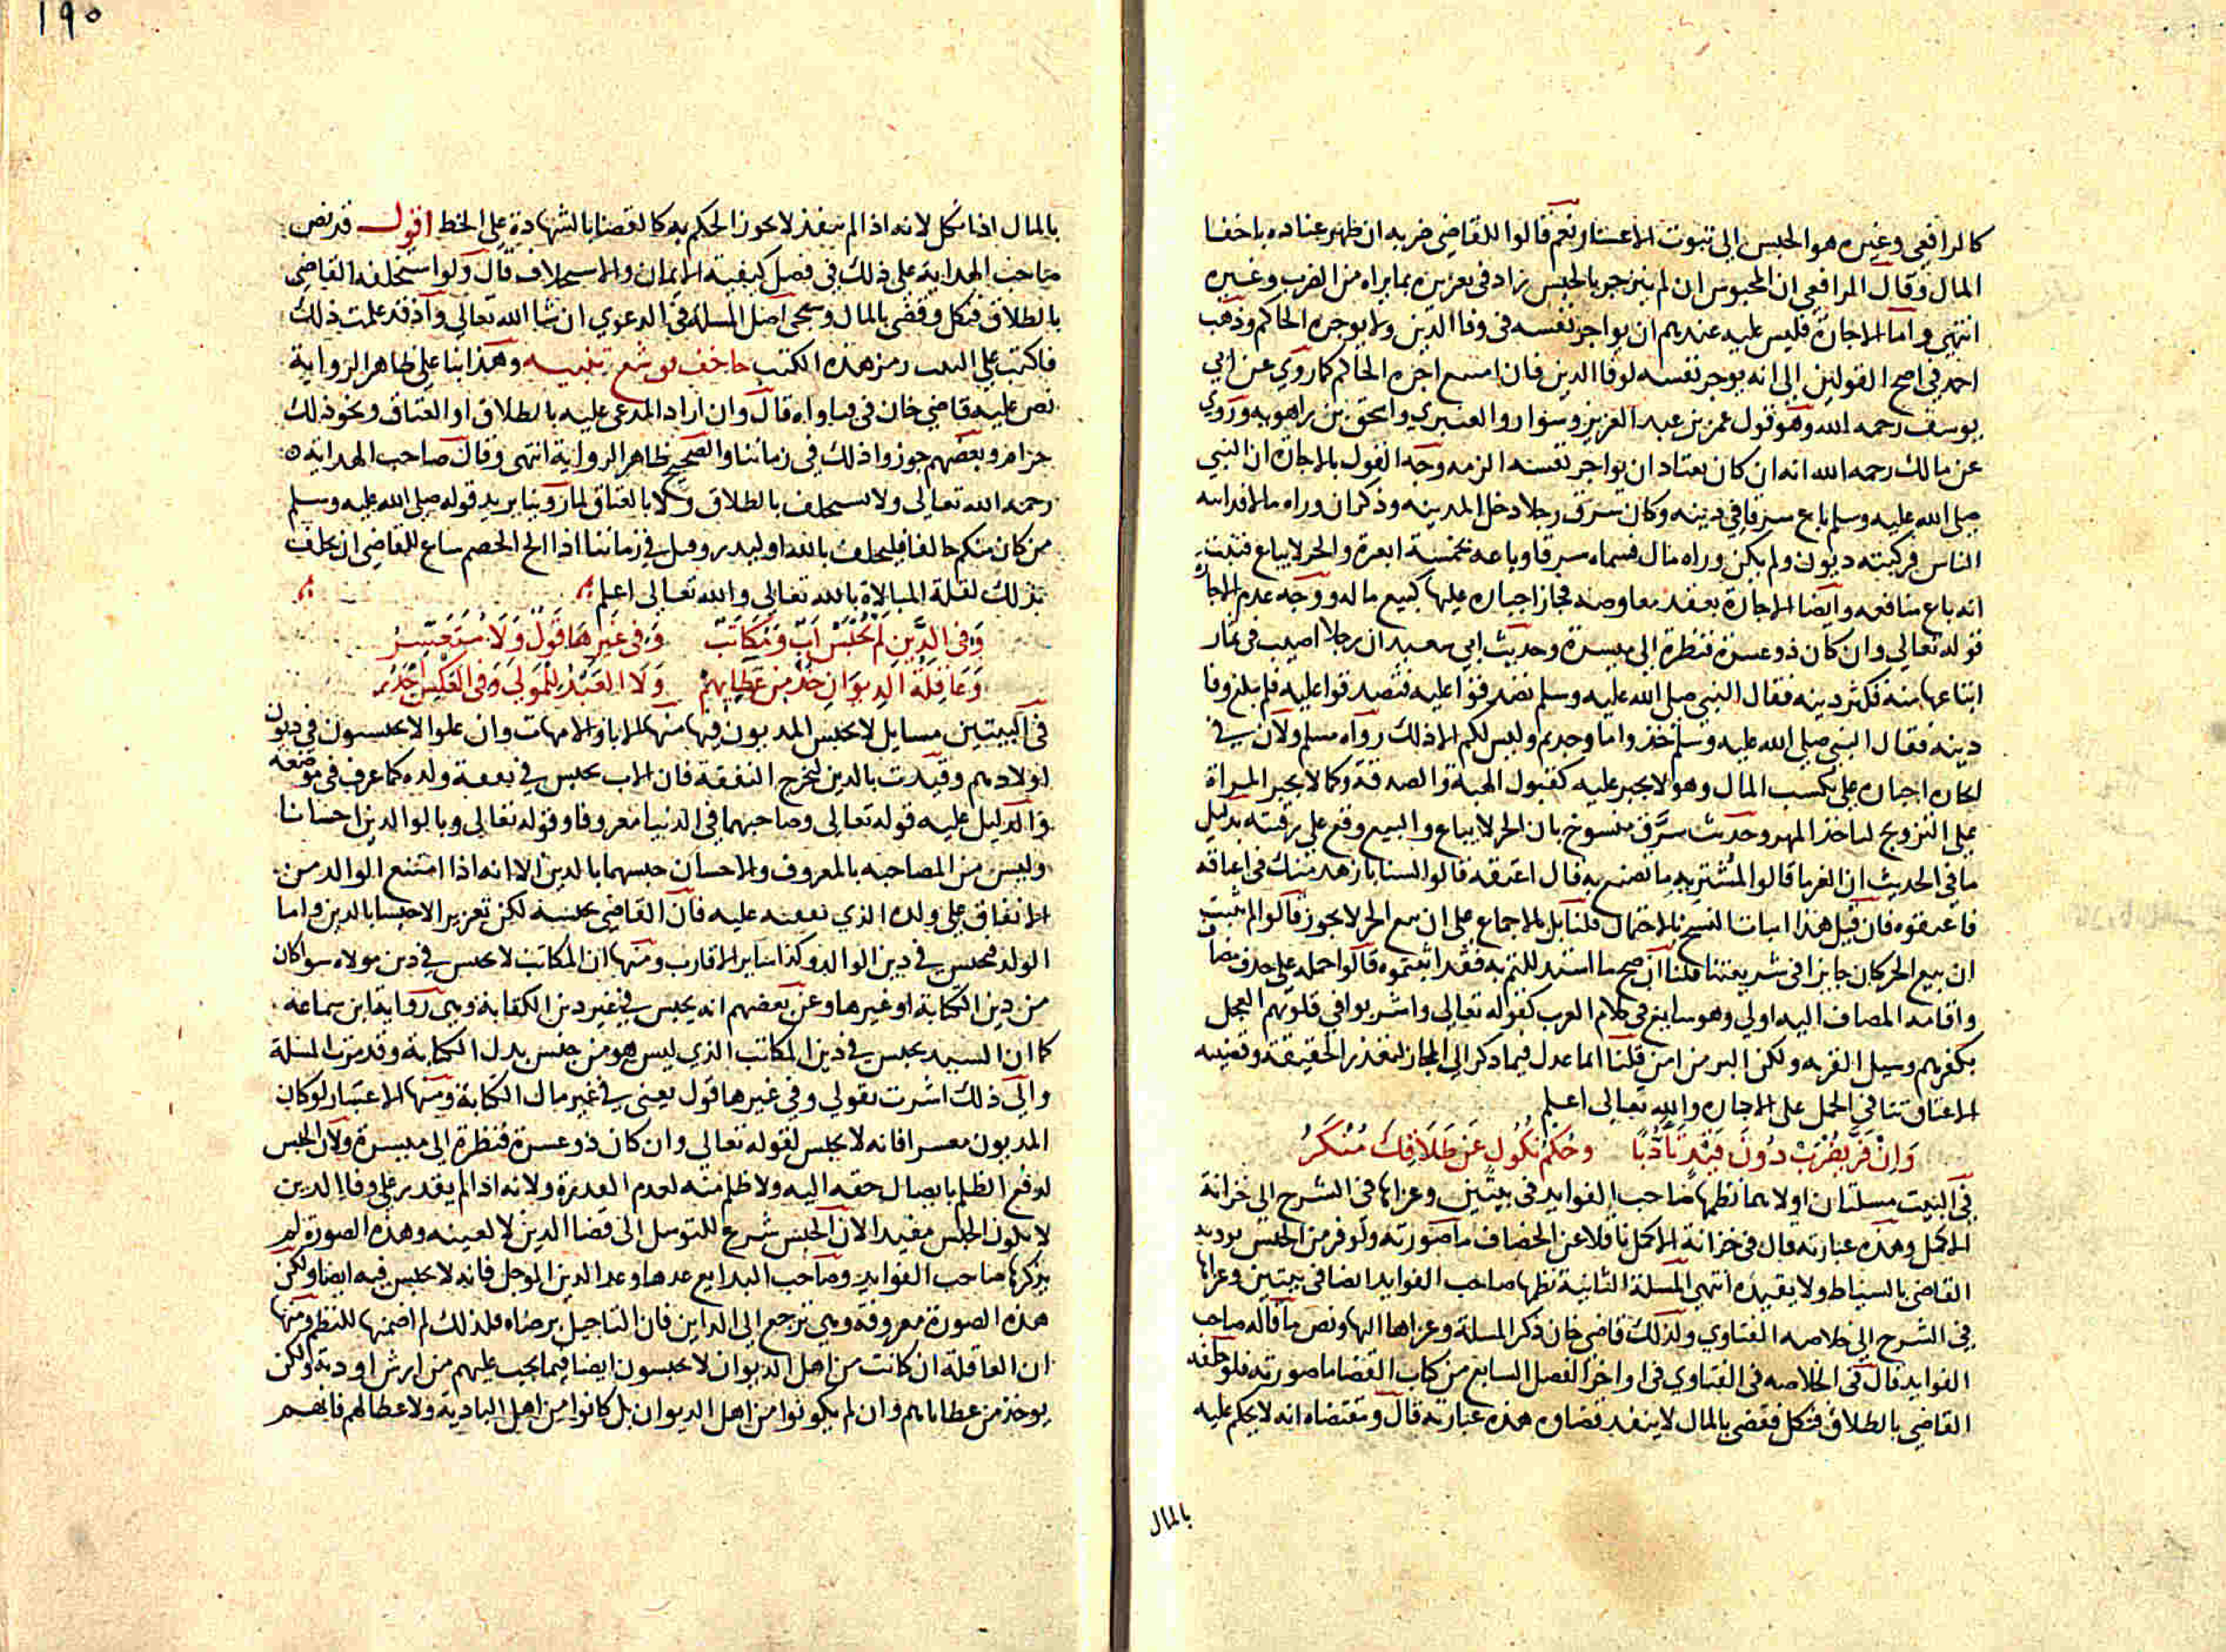 كالرافعي وغيره هو الحبس الى ثبوت الاعسار نعم قالوا للقاضي ضربه ان ظهر عناده باخفا
المال وقال الرافعي ان المحبوس ان لم ينزجر بالحبس زاد في تعزيره بما يراه من الضرب وغيره
انتهي واما الاجارة فليس عليه عندهم ان يواجر نفسه في وفا الدين ولا يوجره الحاكم وذهب
احمد في اصح القولين الى انه يوجر نفسه لوفا الدين فان امتنع اجره الحاكم كما روي عن ابي
يوسف رحمه الله وهو قول عمر بن عبد العزيز وسوار والعنبري واسحق بن راهويه وروي
عن مالك رحمه الله انه ان كان يعتاد ان يواجر نفسه الزمه وجه القول بالاجارة ان النبي
صلى الله عليه وسلم باع سرقا في دينه وكان سرق رجلا دخل المدينه وذكر ان وراه مالا فداينه
الناس فركبته ديون ولم يكن وراه مال فسماه سرقا وباعه بخمسة ابعرة والحر لا يباع فثبت
انه باع منافعه وايضا الاجارة بعقد معاوضه فجاز اجباره عليها كبيع ماله ووجه عدم الاجارة
قوله تعالي وان كان ذو عسرة فنظرة الى ميسرة وحديث ابي سعيد ان رجلا اصيب في ثمار
ابتاعها منه فكثر دينه فقال النبي صلى الله عليه وسلم تصدقوا عليه فتصدقوا عليه فلم يبلغ وفا
دينه فقال النبي صلى الله عليه وسلم خذوا ما وجدتم وليس لكم الا ذلك رواه مسلم ولان في
ايجاره اجباره على تكسب المال وهو لا يجبر عليه كقبول الهبة والصدقة وكما لا يجبر المراة
على التزويج لياخذ المهر وحديث سرق منسوخ بان الحر لا يباع والبيع وقع على رقبته بدليل
ما في الحديث ان الغرما قالوا لمشتريه ما تصنع به قال اعتقه قالوا لسنا بازهد منك في اعتاقه
فاعتقوه فان قيل هذا اثبات النسخ بالاحتمال قلنا بل بالاجماع على ان بيع الحر لا يجوز قالوا لم يثبت
ان بيع الحر كان جايزا في شريعتنا قلنا ان صح ما استدللتم به فقد اثبتموه قالوا حمله على حذف مضاف
واقامه المضاف اليه اولي وهو سايغ في كلام العرب كقوله تعالى واشربوا في قلوبهم العجل
بكفرهم وسيل القريه ولكن البر من امن قلنا انما عدل فيما ذكر الي المجاز لتعذر الحقيقة وقضيه
الاعتاق تنافي الحمل على الاجاره والله تعالى اعلم
وان فر يضرب دون قيد تادبا وحكم نكول عن طلاقك منكر
في البيت مسلتان اولاهما نظمها صاحب الفوايد في بيتين وعزاها في الشرح الي خزانة
الاكمل وهذه عبارته قال في خزانة الاكمل ناقلا عن الخصاف ما صورته ولو فر من الحبس يودبه
القاضي بالسياط ولا يقيده انتهى المسلة الثانية نظمها صاحب الفوايد ايضا في بيتين وعزاها
في الشرح الى خلاصه الفتاوي وكذلك قاضي خان ذكر المسلة وعزاها اليها ونص ما قاله صاحب
الفوايد قال في الخلاصه في الفتاوي في اواخر الفصل السابع من كتاب القضا ما صورته فلو حلفه
القاضي بالطلاق فنكل فقضى بالمال لا ينفذ قضاوه هذه عبارته قال ومقتضاه انه لا يحكم عليه
بالمال
١٩٠
بالمال اذا نكل لانه اذا لم ينفذ لا يجوز الحكم به كالقضا بالشهادة على الخط اقول قد نص
صاحب الهداية على ذلك في فصل كيفية الايمان والاستحلاف قال ولو استحلفه القاضي
بالطلاق فنكل وقضى بالمال وسيجي اصل المسلة في الدعوي ان شا الله تعالى واذ قد علمت ذلك
فاكتب على البيت رمز هذه الكتب تنبيه وهذا بنا على ظاهر الرواية
نص عليه قاضي خان في فتاواه قال وان اراد المدعى عليه بالطلاق او العتاق ونحو ذلك
وبعضهم جوزوا ذلك في زماننا والصحيح ظاهر الرواية انتهى وقال صاحب الهدايه
رحمه الله تعالى ولا يستحلف بالطلاق ولا بالعتاق لما روينا يريد قوله صلى الله عليه وسلم
من كان منكم حالفا فليحلف بالله او ليذر وقيل في زماننا اذا الح الخصم ساغ للقاضي ان يحلف
بذلك لقلة المبالاة بالله تعالى والله تعالى اعلم
وفي الدين لم يحبس اب ومكاتب وفي غيرها قول ولا متعسر
وعاقلة الديوان خذ من عطايهم ولا العبد للمولى وفي العكس اجدر
في البيتين مسايل لا يحبس المديون فيها منها الابا والامهات وان علوا لا يحبسون في ديون
اولادهم وقيدت بالدين لتخرج النفقة فان الاب يحبس في نفقة ولده كما عرف في موضعه
والدليل عليه قوله تعالى وصاحبهما في الدنيا معروفا وقوله تعالى وبالوالدين احسانا
وليس من المصاحبه بالمعروف والاحسان حبسهما بالدين الا انه اذا امتنع الوالد من
الانفاق على ولده الذي نفقته عليه فان القاضي يحبسه لكن تعزيرا لا حبسا بالدين واما
الولد فيحبس في دين الوالد وكذا ساير الاقارب ومنها ان المكاتب لا يحبس في دين مولاه سوا كان
من دين الكتابة او غيرها وعن بعضهم انه يحبس في غير دين الكتابة وهي رواية ابن سماعه
كما ان السيد يحبس في دين المكاتب الذي ليس هو من جنس بدل الكتابة وقد مرت المسلة
والى ذلك اشرت بقولي وفي غيرها قول يعني في غير مال الكتابة ومنها الاعسار لو كان
المديون معسرا فانه لا يحبس لقوله تعالى وان كان ذو عسرة فنظرة الى ميسرة ولان الحبس
لدفع الظلم بايصال حقه اليه ولا ظلم منه لعدم القدرة ولانه اذا لم يقدر على وفا الدين
لا يكون الحبس مفيدا لان الحبس شرع للتوسل الى قضا الدين لا لعينه وهذه الصورة لم
يذكرها صاحب الفوايد وصاحب البدايع عدها وعد الدين الموجل فانه لا يحبس فيه ايضا ولكن
هذه الصورة معروفة وهي ترجع الى الداين فان التاجيل برضاه فلذلك لم اضمها للنظم ومنها
ان العاقلة ان كانت من اهل الديوان لا يحبسون ايضا فيما يجب عليهم من ارش او دية ولكن
يوخذ من عطاياهم وان لم يكونوا من اهل الديوان بل كانوا من اهل البادية ولا عطا لهم فانهم